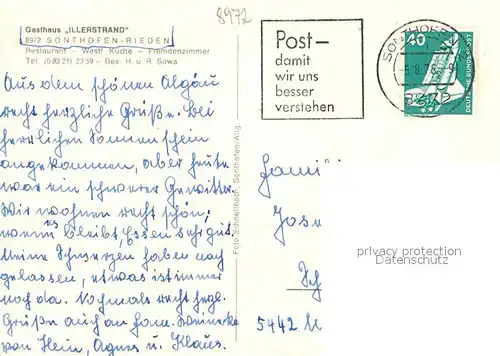 8972
Gasthaus „ILLERSTRAND"
8972 SONTHOFEN-RIEDEN
Restaurant – Westf Küche – Fremdenzimmer
Tel. (0 83 21) 23 59 – Bes. H. u R Sowa
Post–
damit
wir uns
besser
verstehen
SONTHOFEN
8972
40
DEUTSCHE BUNDESPOST
Aus dem schönen Algäu
recht herzliche Grüße. Bei
herrlichen Sonnenschein
angekommen, aber heute
war ein schwerer Gewitter.
Wir wohnen recht schön,
wenns bleibt, Essen sehr gut.
Meine Schmerzen haben nach
gelassen, etwas ist immer
noch da. Nochmals recht herzl.
Grüße auch an Fam.
von Hein, Agnes u. Klaus.
Foto Schnellbach, Sonthofen/Allg.
Fami
Jose
privacy protection
Datenschutz
5442